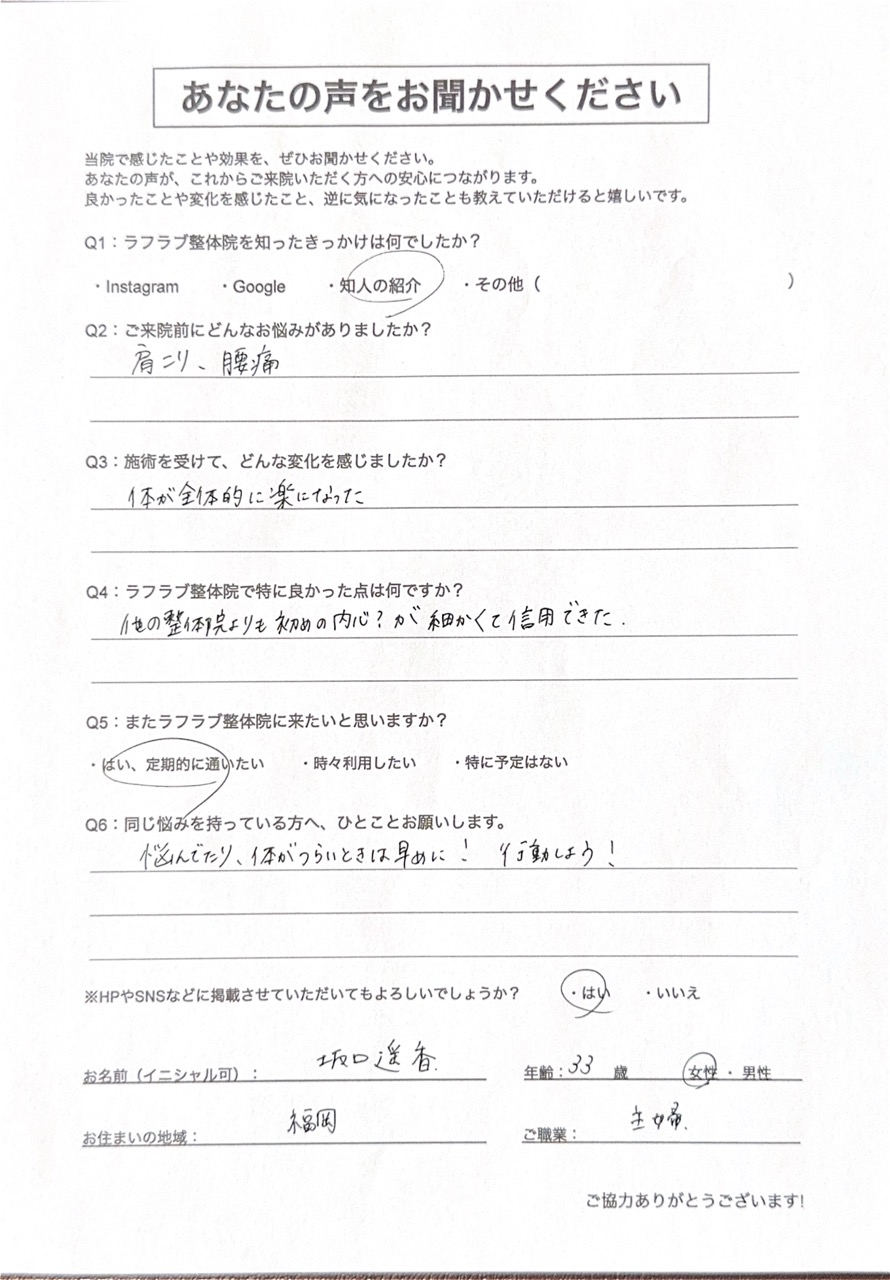 あなたの声をお聞かせください
当院で感じたことや効果を、ぜひお聞かせください。
あなたの声が、これからご来院いただく方への安心につながります。
良かったことや変化を感じたこと、逆に気になったことも教えていただけると嬉しいです。
Q1：ラフラブ整体院を知ったきっかけは何でしたか？
・Instagram ・Google ・知人の紹介 ・その他（ ）
Q2：ご来院前にどんなお悩みがありましたか？
肩こり、腰痛
Q3：施術を受けて、どんな変化を感じましたか？
体が全体的に楽になった
Q4：ラフラブ整体院で特に良かった点は何ですか？
他の整体院よりも初めの内心？が細かくて信用できた.
Q5：またラフラブ整体院に来たいと思いますか？
・はい、定期的に通いたい ・時々利用したい ・特に予定はない
Q6：同じ悩みを持っている方へ、ひとことお願いします。
悩んでたり、体がつらいときは早めに！ 行動しよう！
※HPやSNSなどに掲載させていただいてもよろしいでしょうか？ ・はい ・いいえ
お名前（イニシャル可）： 坂口遥香. 年齢：33 歳 女性 ・ 男性
お住まいの地域： 福岡 ご職業： 主婦.
ご協力ありがとうございます!